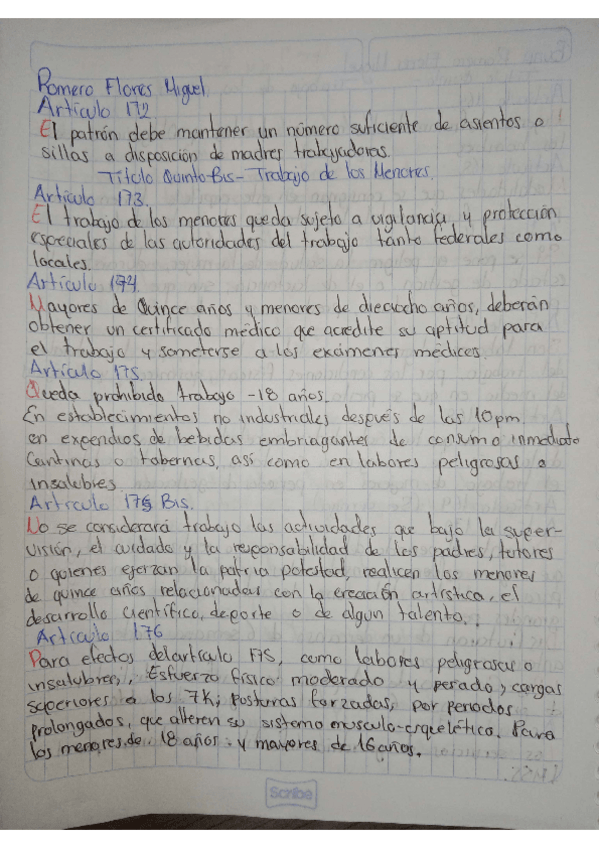 Romero Flores Miguel.
Artículo 172
El patrón debe mantener un número suficiente de asientos o
sillas a disposición de madres trabajadoras.
Título Quinto-Bis- Trabajo de los Menores.
Artículo 173.
El trabajo de los menores queda sujeto a vigilancia y protección
especiales de las autoridades del trabajo tanto federales como
locales.
Artículo 174.
Mayores de Quince años y menores de dieciocho años, deberán
obtener un certificado médico que acredite su aptitud para
el trabajo y someterse a los exámenes médicos
Artículo 175.
Queda prohibido trabajo -18 años.
En establecimientos no industriales después de las 10pm
en expendios de bebidas embriagantes de consumo inmediato
Cantinas o tabernas, así como en labores peligrosas o
insalubres
Artículo 175 Bis.
No se considerará trabajo las actividades que bajo la super-
visión, el cuidado y la responsabilidad de los padres, tutores
o quienes ejerzan la patria potestad, realicen los menores
de quince años relacionadas con la creación artística, el
desarrollo científico, deporte o de algun talento.
Artículo 176
Para efectos del artículo 175, como labores peligrosas o
insalubres, Esfuerzo físico moderado y pesado, cargas
superiores a los 7K; posturas forzadas, por periodos
prolongados, que alteren su sistema musculo-esquelético. Para
los menores de 18 años y mayores de 16 años.
Scribe